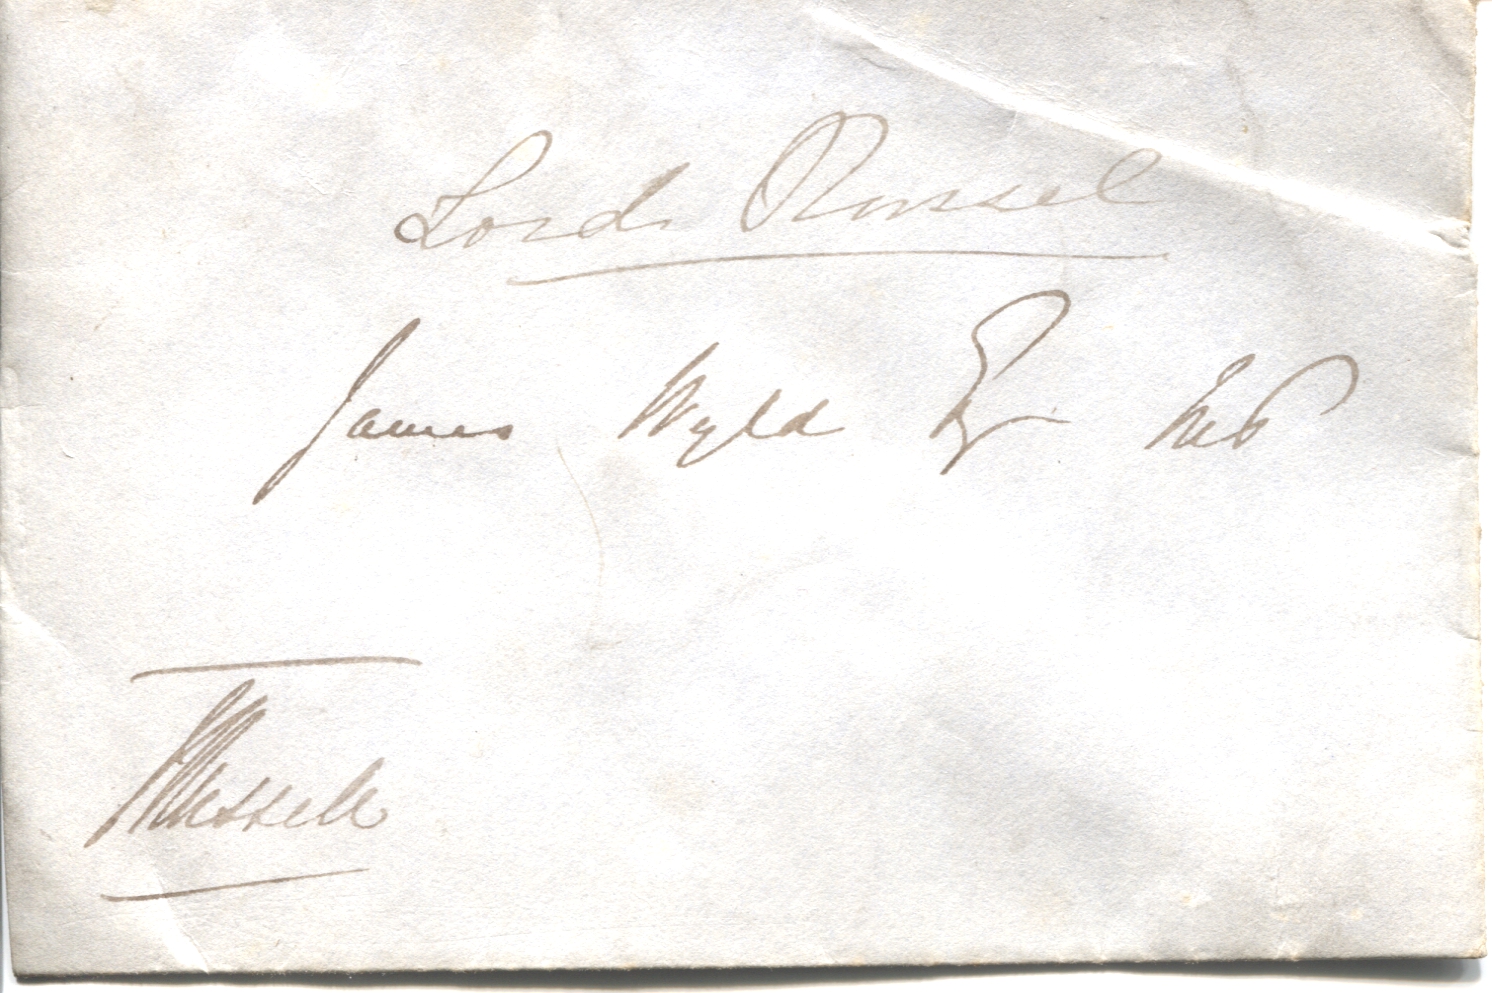 Lord Russel
James Wyld Esqr MP
Russell